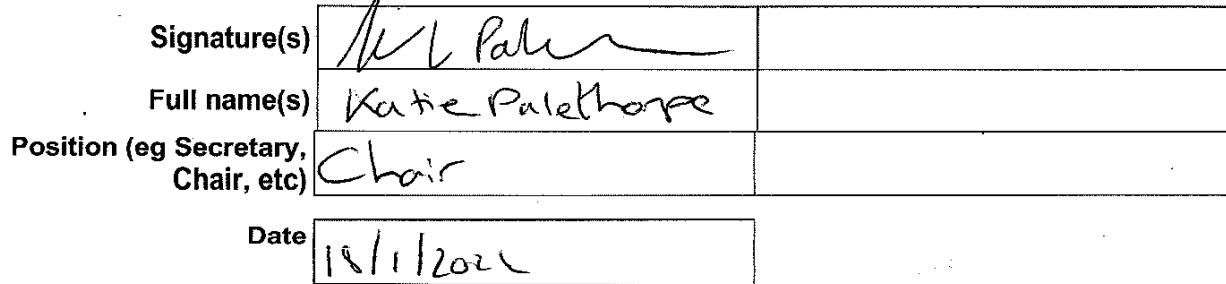 Signature(s)
Full name(s) Katie Palethorpe
Position (eg Secretary,
Chair, etc) Chair
Date